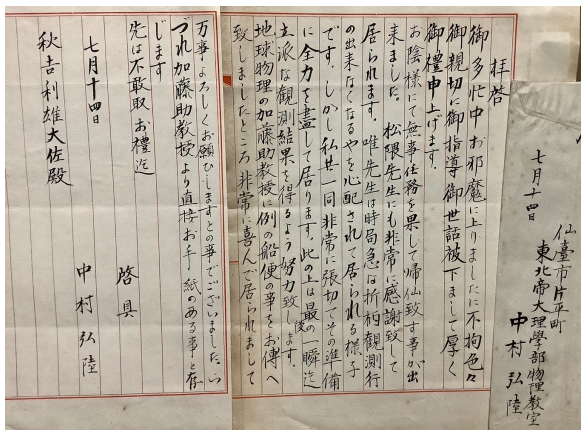 七月十四日
仙臺市片平町
東北帝大理學部物理教室
中村弘陸
拝啓
御多忙中お邪魔に上りましたに不拘色々
御親切に御指導御世話被下まして厚く
御禮申上げます。
お陰様にて無事任務を果して帰仙致す事が出
来ました。松隈先生にも非常に感謝致して
居られます。唯先生は時局急な折柄観測行
の出来なくなるやを心配されて居られる様子
です。しかし私共一同非常に張切てその準備
に全力を盡して居ります。此の上は最後の一瞬迄
立派な観測結果を得るよう努力致します。
地球物理の加藤助教授に例の船便の事をお傳へ
致しましたところ非常に喜んで居られまして
万事よろしくお願ひしますとの事でございました。い
づれ加藤助教授より直接お手紙のある事と存
じます
先は不敢取お禮迄
啓具
七月十四日
中村弘陸
秋吉利雄大佐殿